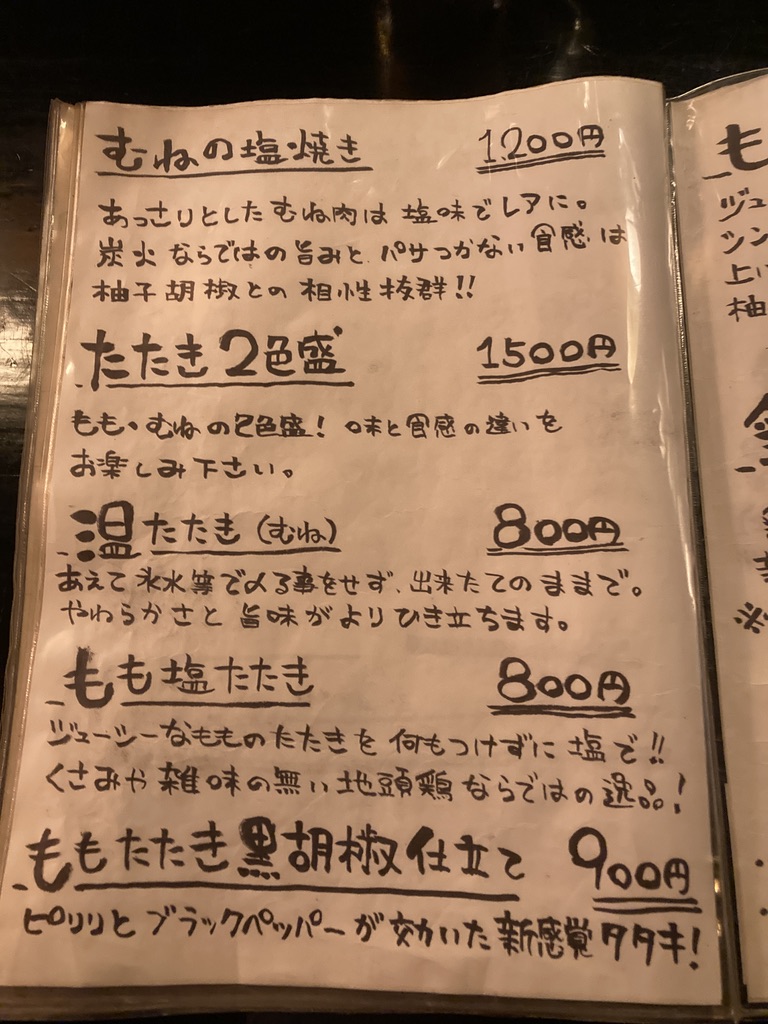 むねの塩焼き 1200円
あっさりとしたむね肉は塩味でレアに。
炭火ならではの旨みとパサつかない食感は
柚子胡椒との相性抜群!!
たたき2色盛 1500円
もも・むねの2色盛! 味と食感の違いを
お楽しみ下さい。
温たたき(むね) 800円
あえて氷水等で〆る事をせず、出来たてのままで。
やわらかさと旨味がよりひき立ちます。
もも塩たたき 800円
ジューシーなもものたたきを何もつけずに塩で!!
くさみや雑味の無い地頭鶏ならではの逸品!
ももたたき黒胡椒仕立て 900円
ピリリとブラックペッパーが効いた新感覚タタキ!
も
ジュー
シン
上
柚
※